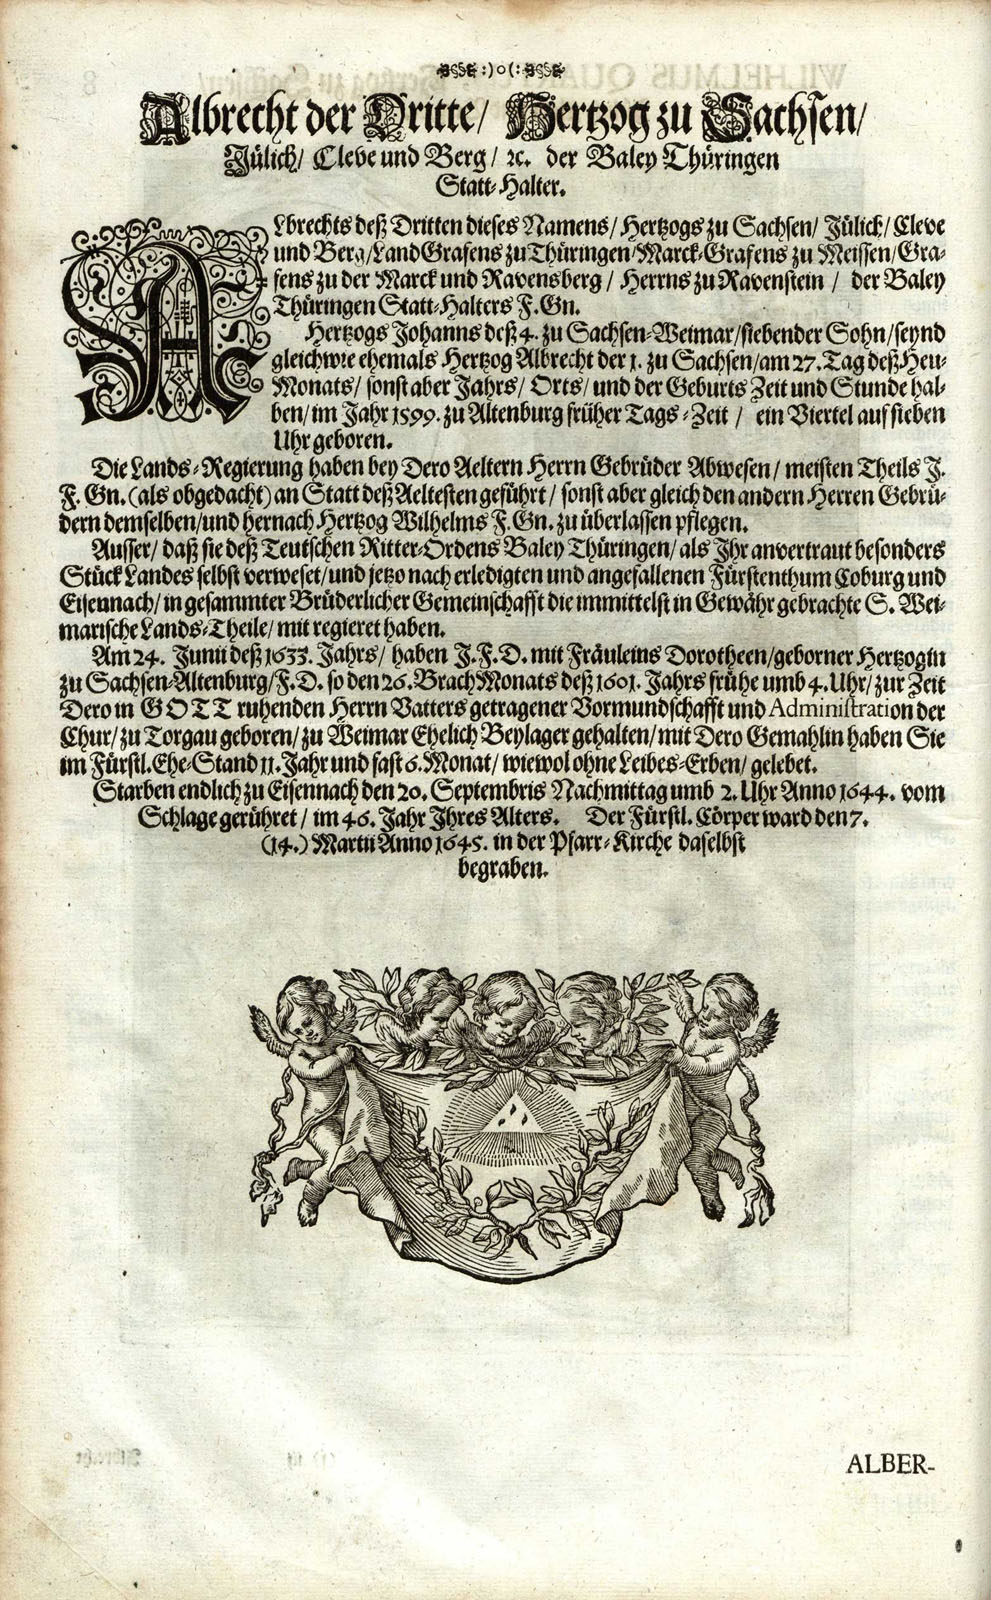 :)o(:
Albrecht der Dritte/ Hertzog zu Sachsen/
Jülich/ Cleve und Berg/ ꝛc. der Baley Thüringen
Statt-Halter.
Albrechts deß Dritten dieses Namens/ Hertzogs zu Sachsen/ Jülich/ Cleve
und Berg/ LandGrafens zu Thüringen/ Marck-Grafens zu Meissen/ Gra-
fens zu der Marck und Ravensberg/ Herrns zu Ravenstein/ der Baley
Thüringen Statt-Halters F. Gn.
Hertzogs Johanns deß 4. zu Sachsen-Weimar/ siebender Sohn/ seynd
gleichwie ehemals Hertzog Albrecht der 1. zu Sachsen/ am 27. Tag deß Heu-
Monats/ sonst aber Jahrs/ Orts/ und der Geburts Zeit und Stunde hal-
ben/ im Jahr 1599. zu Altenburg früher Tags-Zeit/ ein Viertel auf sieben
Uhr geboren.
Die Lands-Regierung haben bey Dero Aeltern Herrn Gebrüder Abwesen/ meisten Theils J.
F. Gn. (als obgedacht) an Statt deß Aeltesten geführt/ sonst aber gleich den andern Herren Gebrü-
dern demselben/ und hernach Hertzog Wilhelms F. Gn. zu überlassen pflegen.
Ausser/ daß sie deß Teutschen Ritter-Ordens Baley Thüringen/ als Ihr anvertraut besonders
Stück Landes selbst verweset/ und jetzo nach erledigten und angefallenen Fürstenthum Coburg und
Eisennach/ in gesammter Brüderlicher Gemeinschafft die immittelst in Gewähr gebrachte S. Wei-
marische Lands-Theile/ mit regieret haben.
Am 24. Junii deß 1633. Jahrs/ haben J. F. D. mit Fräuleins Dorotheen/ geborner Hertzogin
zu Sachsen-Altenburg/ F. D. so den 26. BrachMonats deß 1601. Jahrs frühe umb 4. Uhr/ zur Zeit
Dero in GOTT ruhenden Herrn Vatters getragener Vormundschafft und Administration der
Chur/ zu Torgau geboren/ zu Weimar Ehelich Beylager gehalten/ mit Dero Gemahlin haben Sie
im Fürstl. Ehe-Stand 11. Jahr und fast 6. Monat/ wiewol ohne Leibes-Erben/ gelebet.
Starben endlich zu Eisennach den 20. Septembris Nachmittag umb 2. Uhr Anno 1644. vom
Schlage gerühret/ im 46. Jahr Ihres Alters. Der Fürstl. Cörper ward den 7.
(14.) Martii Anno 1645. in der Pfarr-Kirche daselbst
begraben.
ALBER-